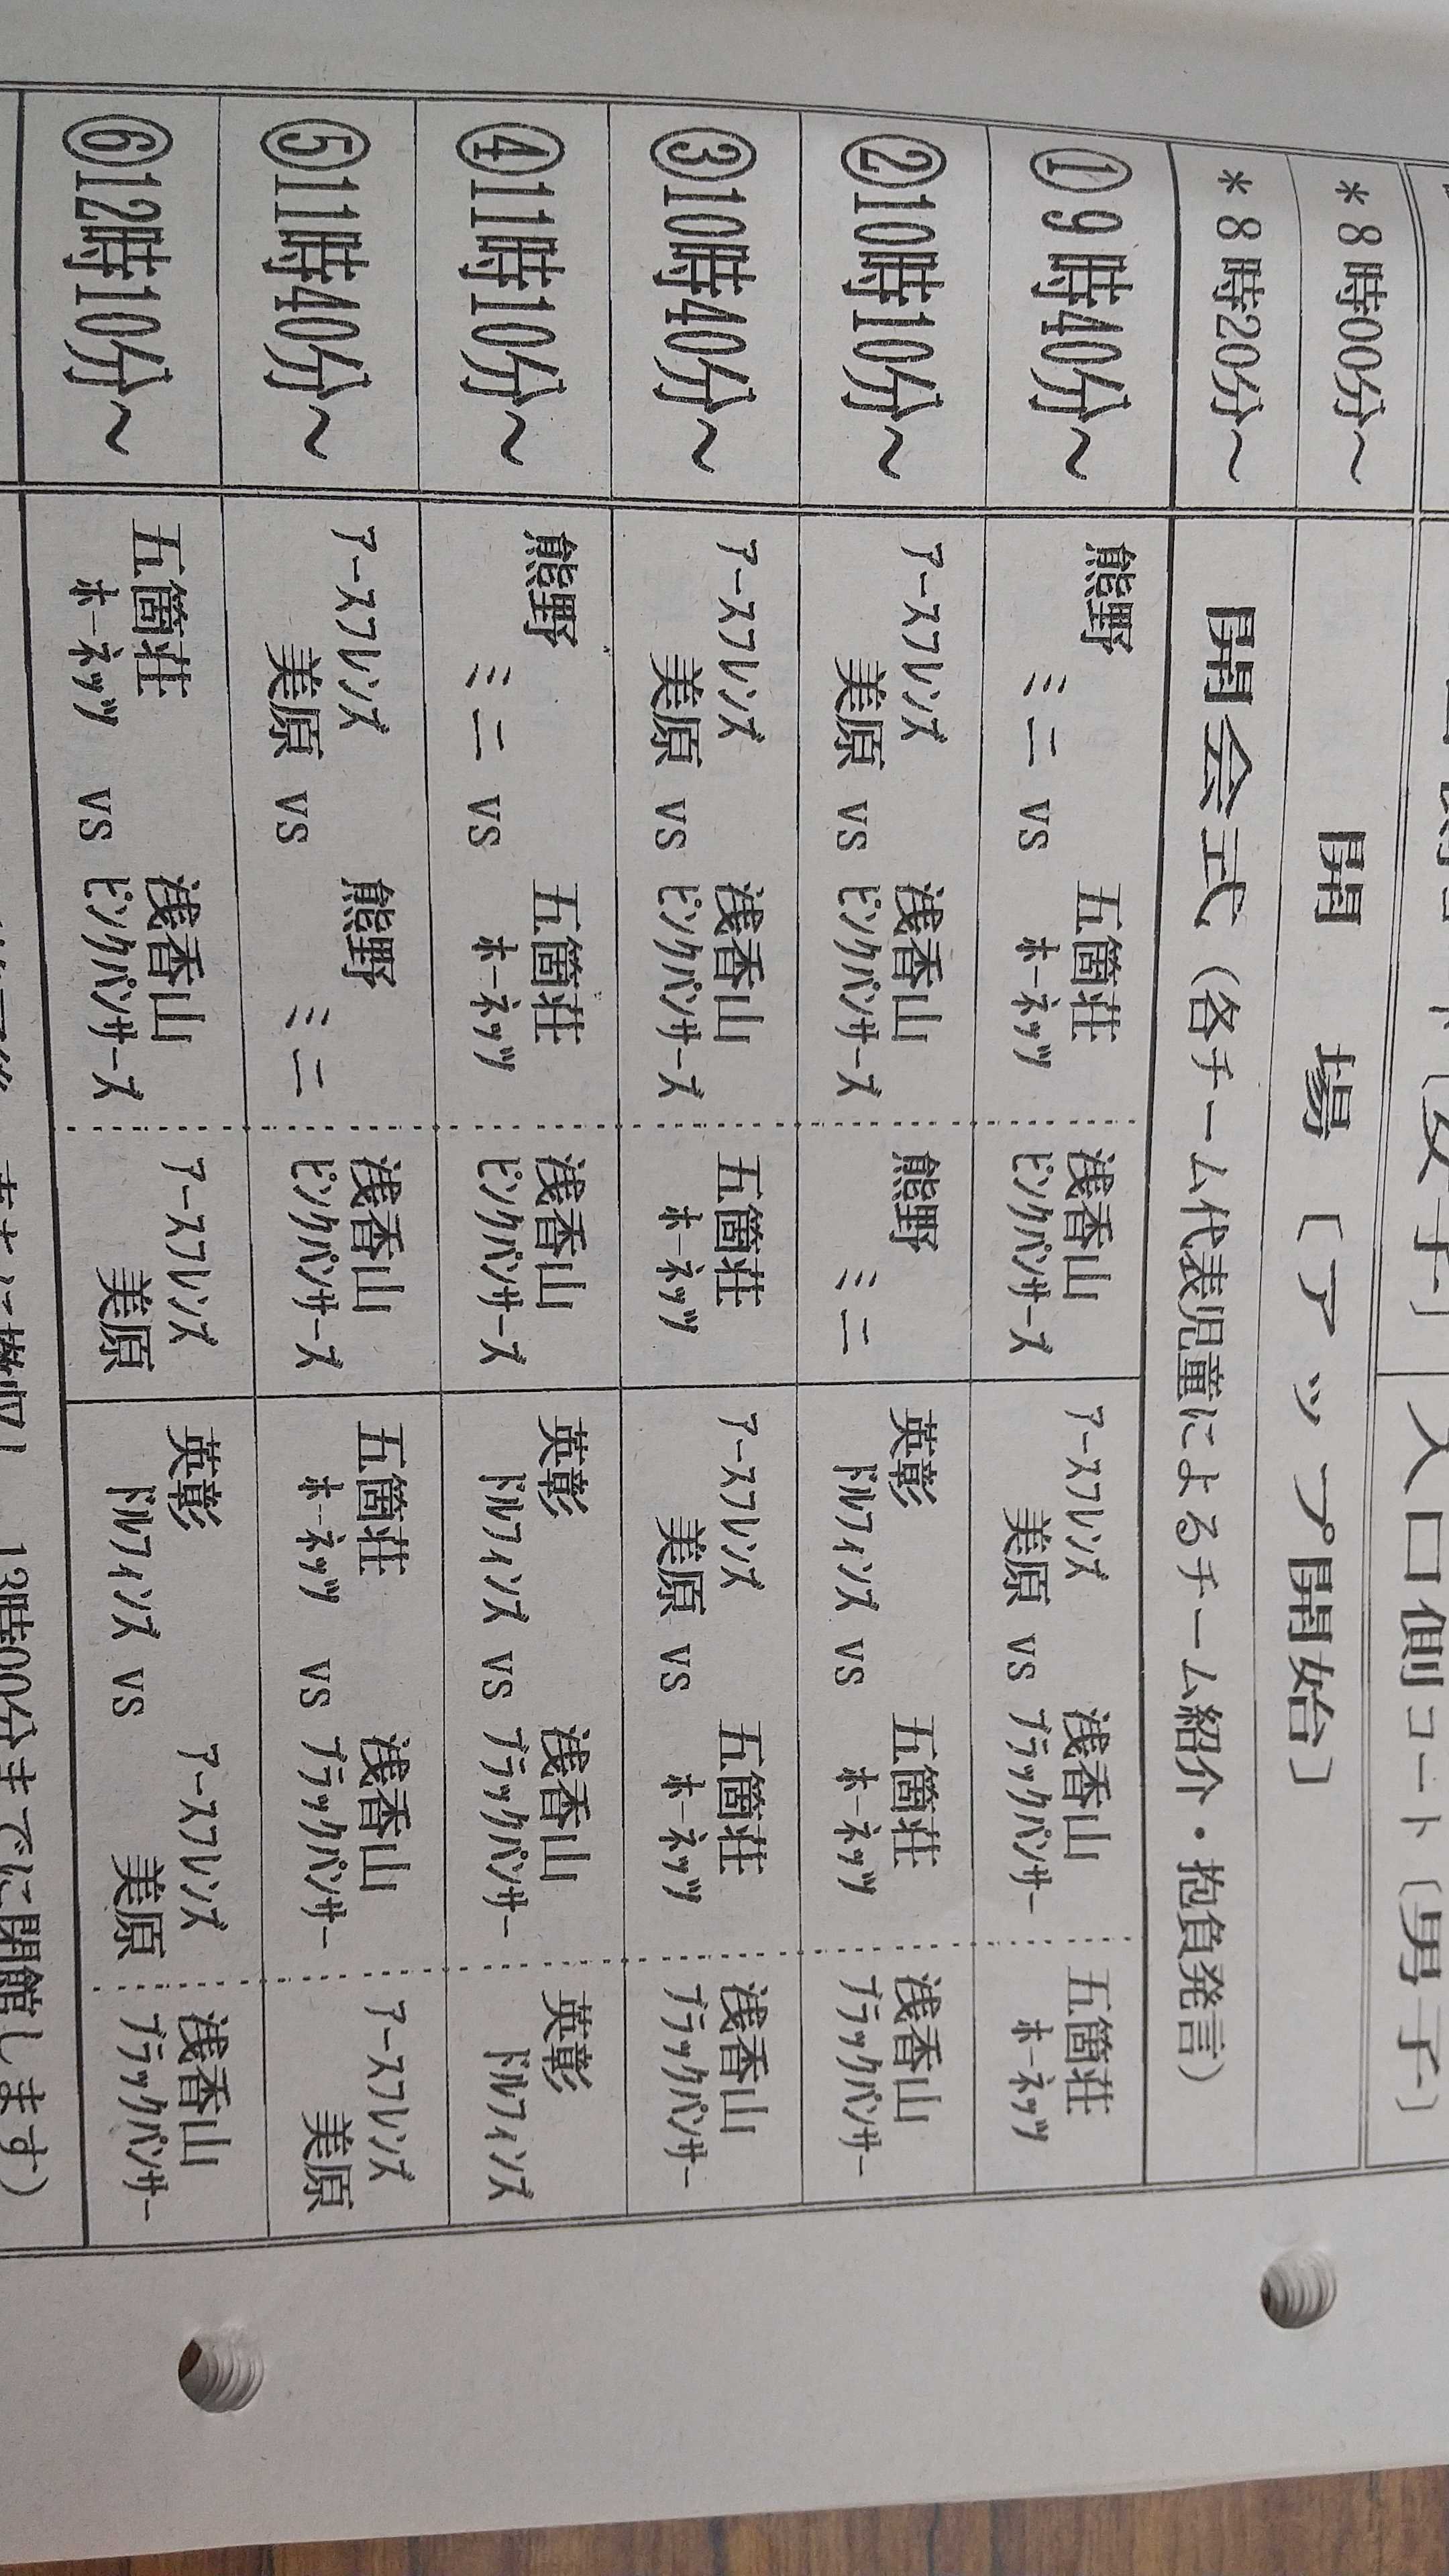 〔女子〕 入口側コート〔男子〕
＊8時00分～ 開 場 〔アップ開始〕
＊8時20分～ 開会式（各チーム代表児童によるチーム紹介・抱負発言）
①9時40分～ 熊野 ミニ vs 五箇荘 ﾎｰﾈｯﾂ 浅香山 ﾋﾟﾝｸﾊﾟﾝｻｰｽﾞ ｱｰｽﾌﾚﾝｽﾞ 美原 vs 浅香山 ﾌﾞﾗｯｸﾊﾟﾝｻｰ 五箇荘 ﾎｰﾈｯﾂ
②10時10分～ ｱｰｽﾌﾚﾝｽﾞ 美原 vs 浅香山 ﾋﾟﾝｸﾊﾟﾝｻｰｽﾞ 熊野 ミニ 英彰 ﾄﾞﾙﾌｨﾝｽﾞ vs 五箇荘 ﾎｰﾈｯﾂ 浅香山 ﾌﾞﾗｯｸﾊﾟﾝｻｰ
③10時40分～ ｱｰｽﾌﾚﾝｽﾞ 美原 vs 浅香山 ﾋﾟﾝｸﾊﾟﾝｻｰｽﾞ 五箇荘 ﾎｰﾈｯﾂ ｱｰｽﾌﾚﾝｽﾞ 美原 vs 五箇荘 ﾎｰﾈｯﾂ 浅香山 ﾌﾞﾗｯｸﾊﾟﾝｻｰ
④11時10分～ 熊野 ミニ vs 五箇荘 ﾎｰﾈｯﾂ 浅香山 ﾋﾟﾝｸﾊﾟﾝｻｰｽﾞ 英彰 ﾄﾞﾙﾌｨﾝｽﾞ vs 浅香山 ﾌﾞﾗｯｸﾊﾟﾝｻｰ 英彰 ﾄﾞﾙﾌｨﾝｽﾞ
⑤11時40分～ ｱｰｽﾌﾚﾝｽﾞ 美原 vs 熊野 ミニ 浅香山 ﾋﾟﾝｸﾊﾟﾝｻｰｽﾞ 五箇荘 ﾎｰﾈｯﾂ vs 浅香山 ﾌﾞﾗｯｸﾊﾟﾝｻｰ ｱｰｽﾌﾚﾝｽﾞ 美原
⑥12時10分～ 五箇荘 ﾎｰﾈｯﾂ vs 浅香山 ﾋﾟﾝｸﾊﾟﾝｻｰｽﾞ ｱｰｽﾌﾚﾝｽﾞ 美原 英彰 ﾄﾞﾙﾌｨﾝｽﾞ vs ｱｰｽﾌﾚﾝｽﾞ 美原 浅香山 ﾌﾞﾗｯｸﾊﾟﾝｻｰ
13時00分までに閉館します）